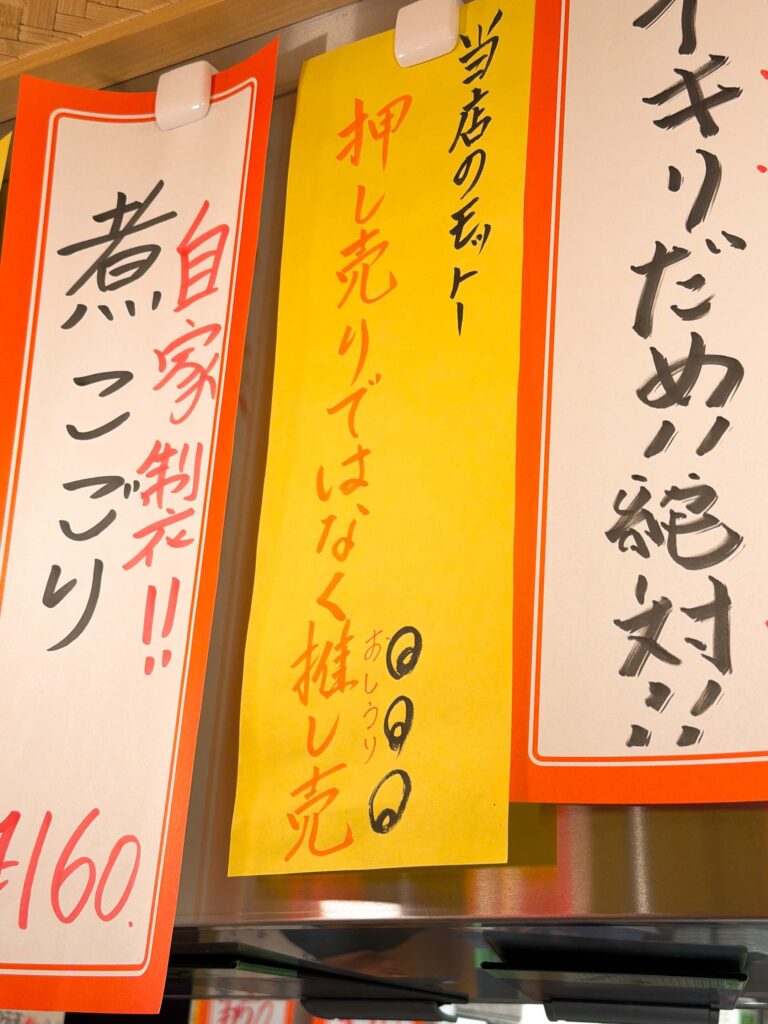 イキリだめ!!絶対!!
当店のモットー
押し売りではなく推し売
おしうり
自家製!!
煮こごり
¥160.